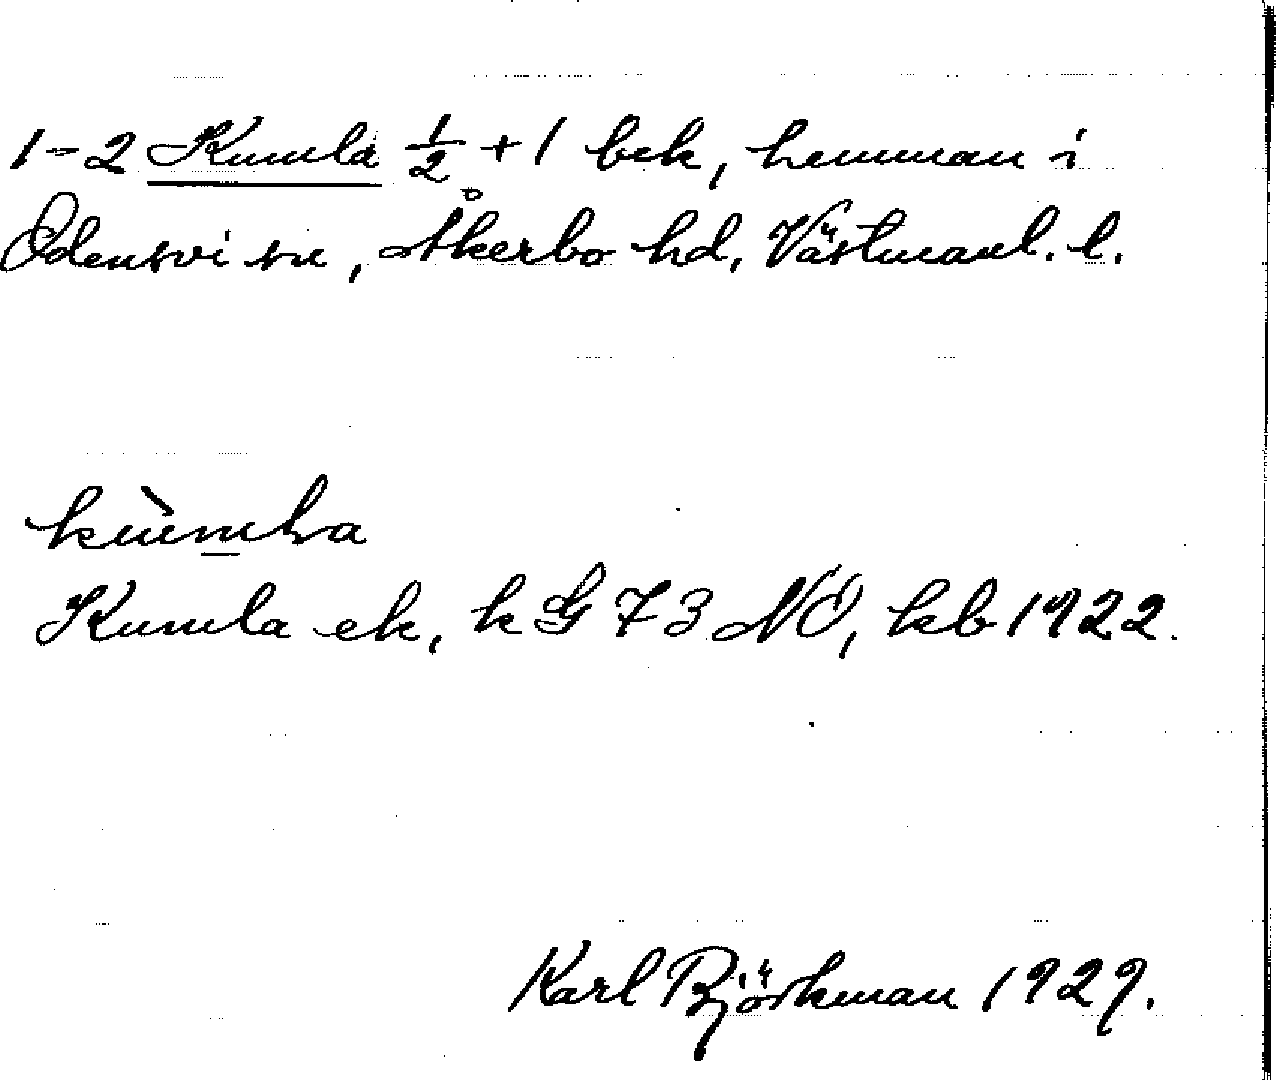 1-2 Kumla 1/2 + 1 bek, hemman i
Odensvi sn, Åkerbo hd, Västmanl. l.
kùmla
Kumla ek, k G 73 NÖ, kb 1922.
Karl Björkman 1929.